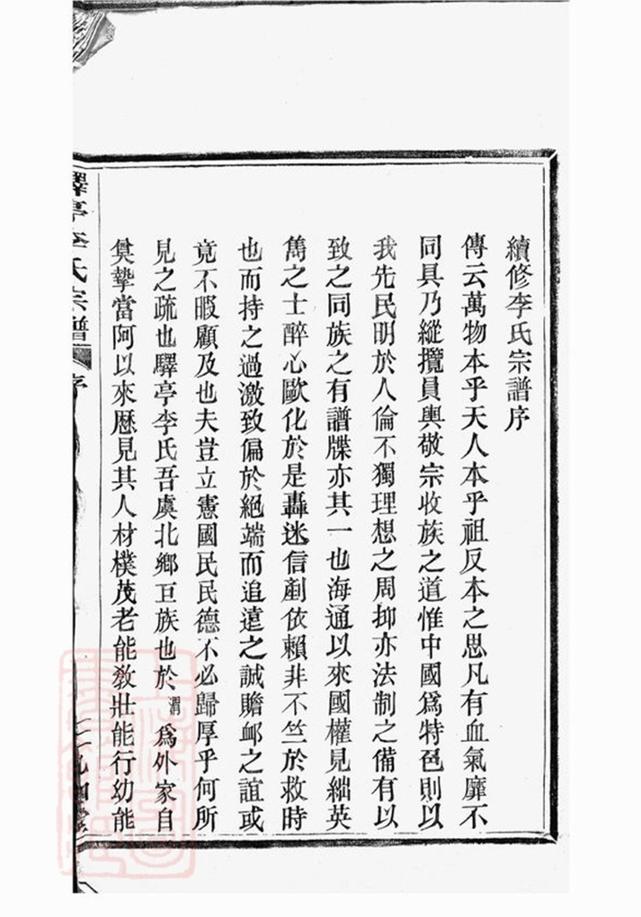 續修李氏宗譜序
傳云萬物本乎天人本乎祖反本之思凡有血氣靡不
同具乃縱攬員輿敬宗收族之道惟中國爲特色則以
我先民明於人倫不獨理想之周抑亦法制之備有以
致之同族之有譜牒亦其一也海通以來國權見絀英
雋之士醉心歐化於是轟迷信劃依賴非不竺於救時
也而持之過激致偏於絕端而追遠之誠贍卹之誼或
竟不暇顧及也夫豈立憲國民民德不必歸厚乎何所
見之疏也驛亭李氏吾虞北鄉亙族也於渭爲外家自
奠摯當阿以來歷見其人材樸茂老能敎壯能行幼能
驛亭李氏宗譜 序